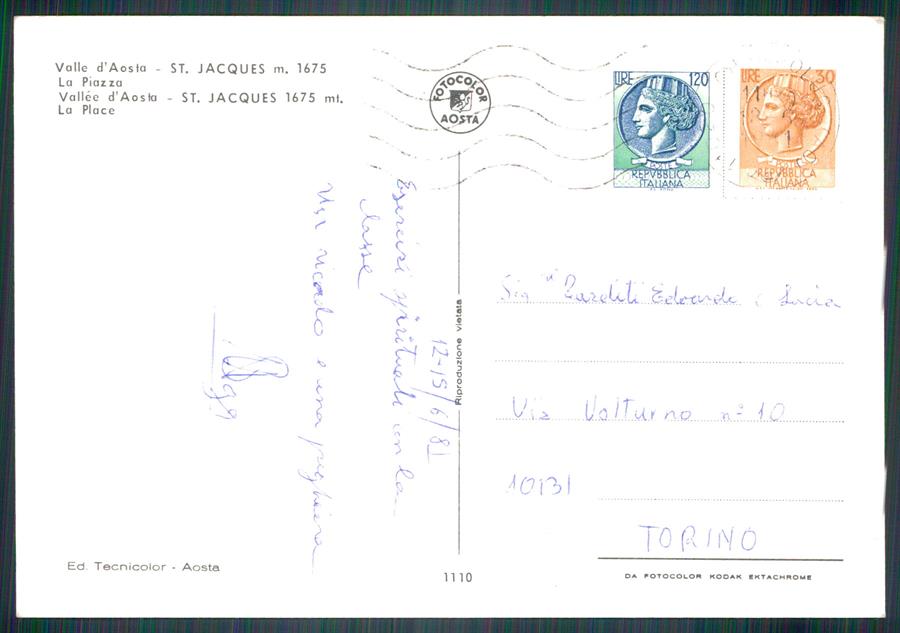 Valle d'Aosta - ST. JACQUES m. 1675
La Piazza
Vallée d'Aosta - ST. JACQUES 1675 mt.
La Place
FOTOCOLOR
AOSTA
LIRE 120
POSTE
REPVBBLICA
ITALIANA
LIRE 30
POSTE
REPVBBLICA
ITALIANA
12-15/6/81
Esercizi spirituali con la
classe
Un ricordo e una preghiera
Riproduzione vietata
Sig.ri Edoardo e Lucia
Via Volturno n° 10
10131
TORINO
Ed. Tecnicolor - Aosta
1110
DA FOTOCOLOR KODAK EKTACHROME